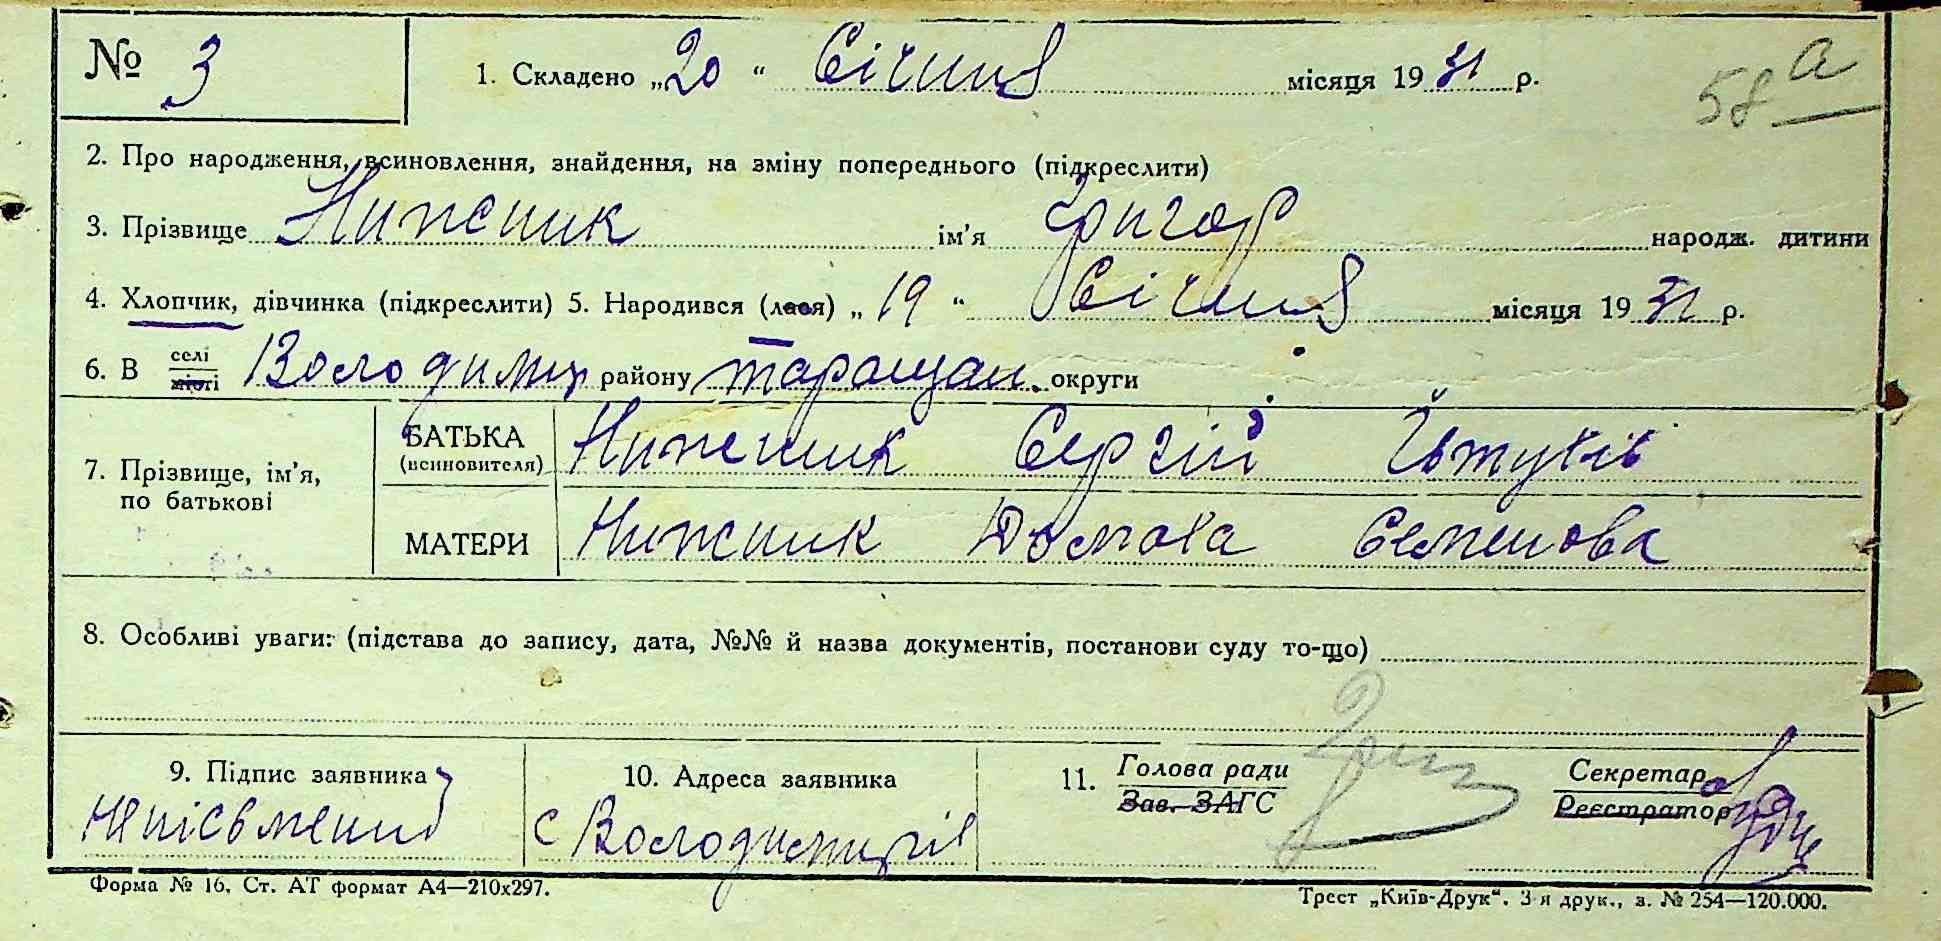 № 3
1. Складено „20“ Січния місяця 1931 р.
58 а
2. Про народження, всиновлення, знайдення, на зміну попереднього (підкреслити)
3. Прізвище Нижник ім'я Григор народж. дитини
4. Хлопчик, дівчинка (підкреслити) 5. Народився (лася) „19“ Січния місяця 1931 р.
6. В селі Володимир району Таращан. округи
місті
7. Прізвище, ім'я, по батькові
БАТЬКА (всиновителя) Нижник Сергій
МАТЕРИ Нижник Домаха Семенова
8. Особливі уваги: (підстава до запису, дата, №№ й назва документів, постанови суду то-що)
9. Підпис заявника
10. Адреса заявника
11. Голова ради
Зав. ЗАГС
Секретар
Реєстратор
с Володимирів
Форма № 16. Ст. АТ формат А4—210х297.
Трест „Київ-Друк“. 3-я друк., з. № 254—120.000.